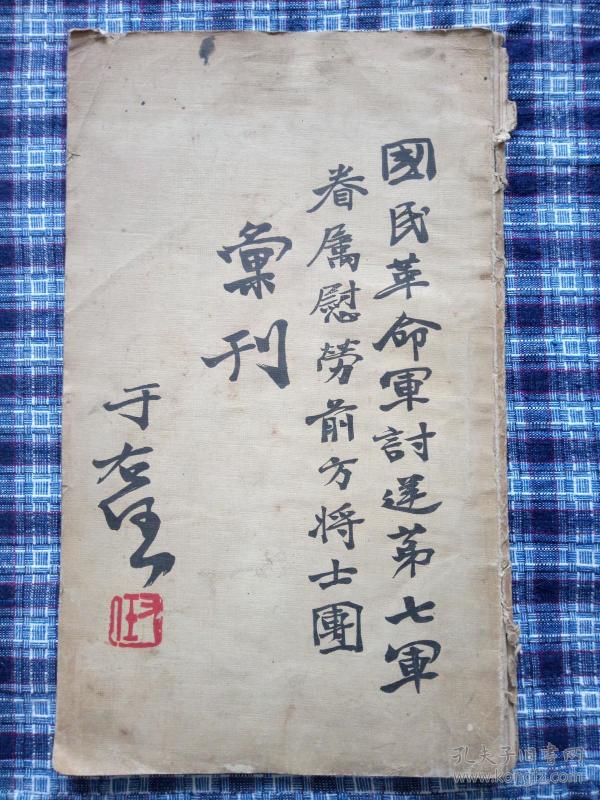 國民革命軍討逆第七軍
眷属慰勞前方将士團
彙刊
于右任
右任
孔夫子旧书网
www.kongfz.com